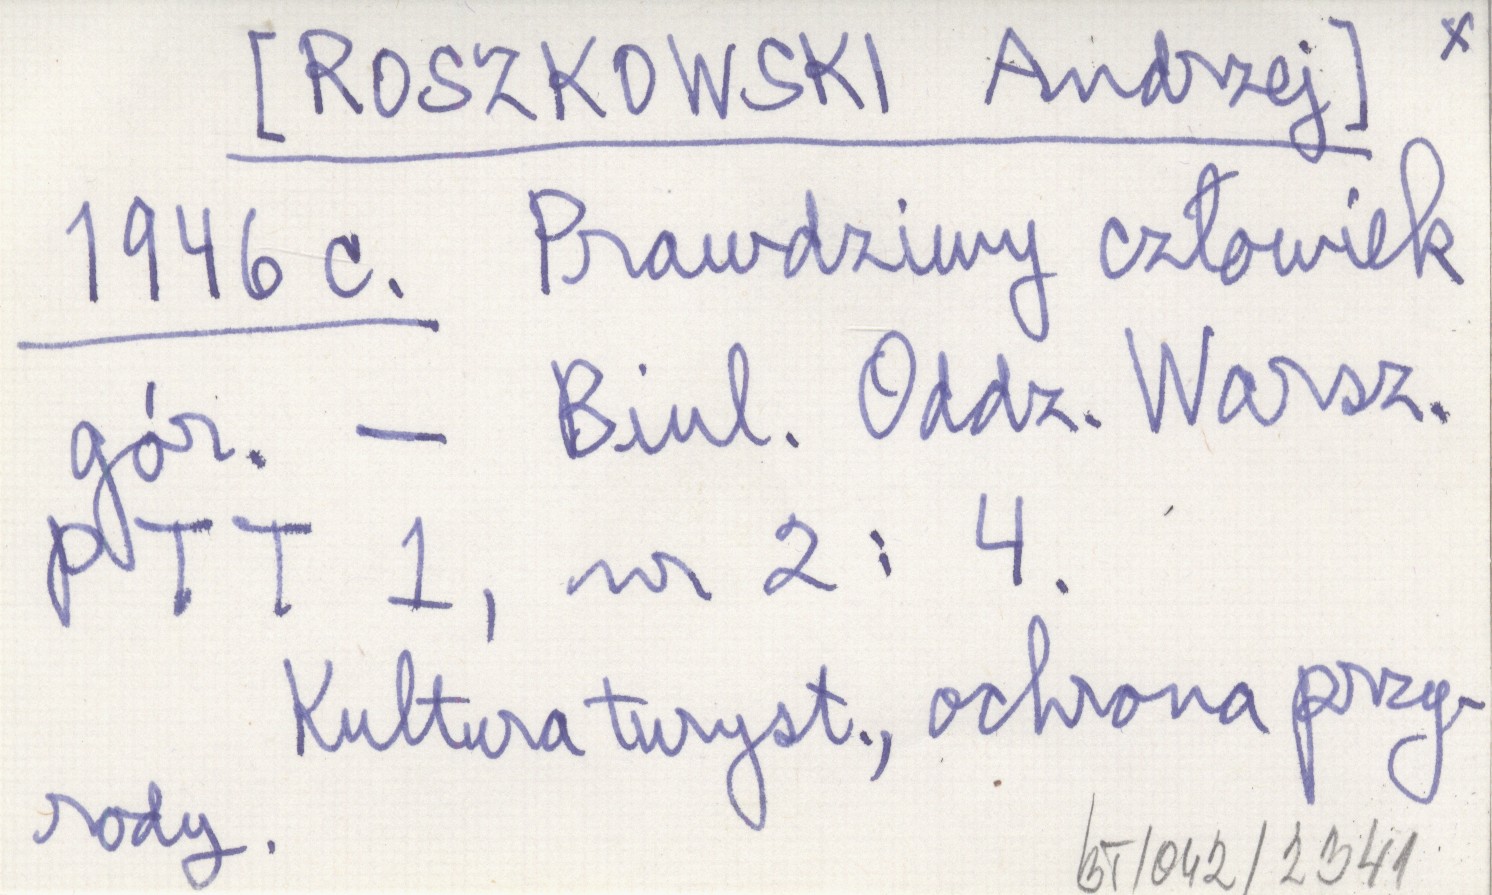 [ROSZKOWSKI Andrzej] x
1946 c. Prawdziwy człowiek
gór. — Biul. Oddz. Warsz.
PTT 1, nr 2 : 4.
Kultura turyst., ochrona przy-
rody.
BT/042/2341